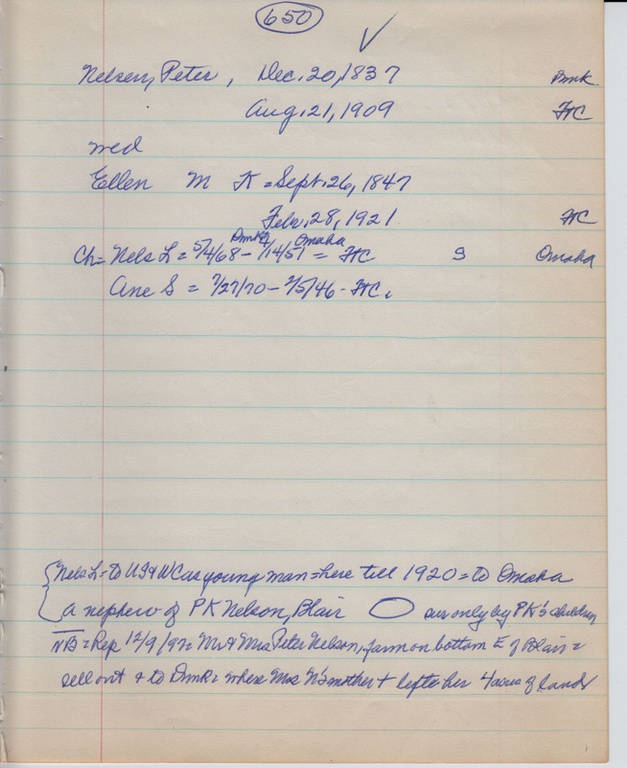 650 ✓
Nelsen, Peter, Dec. 20, 1837 Dmk
Aug. 21, 1909 HC
wed
Ellen M K = Sept. 26, 1847
Feb. 28, 1921 HC
Dmk Omaha
Ch = Nels L = 5/4/68 - /14/51 = HC S Omaha
Ane S = 7/27/70 - 2/5/46 - HC.
{ Nels L = to US & WC as young man = here till 1920 = to Omaha
a nephew of PK Nelson, Blair O sur only by PK's children
NB = Rep 12/9/97 = Mr & Mrs Peter Nelson, farm on bottom E of Blair =
sell out & to Dmk = where Mrs N's mother + left her 4 acres of land